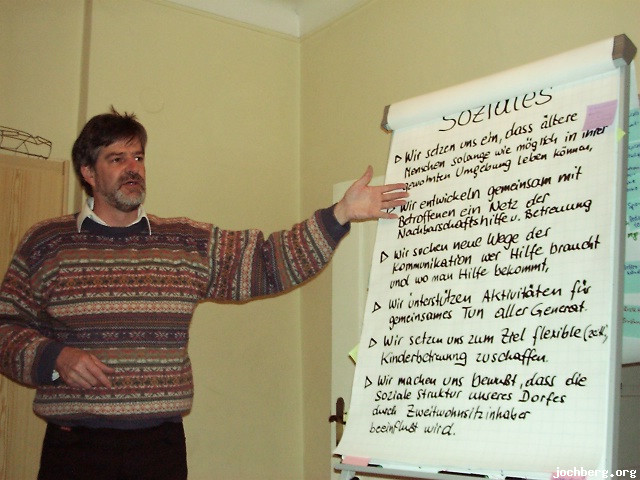 SOZIALES
▷ Wir setzen uns ein, dass ältere
Menschen solange wie möglich in ihrer
gewohnten Umgebung leben können,
▷ Wir entwickeln gemeinsam mit
Betroffenen ein Netz der
Nachbarschaftshilfe u. Betreuung
▷ Wir suchen neue Wege der
Kommunikation wer Hilfe braucht
und wo man Hilfe bekommt,
▷ Wir unterstützen Aktivitäten für
gemeinsames Tun aller Generat.
▷ Wir setzen uns zum Ziel flexible
Kinderbetreuung zu schaffen.
▷ Wir machen uns bewußt, dass die
Soziale Struktur unseres Dorfes
durch Zweitwohnsitzinhaber
beeinflußt wird.
jochberg.org